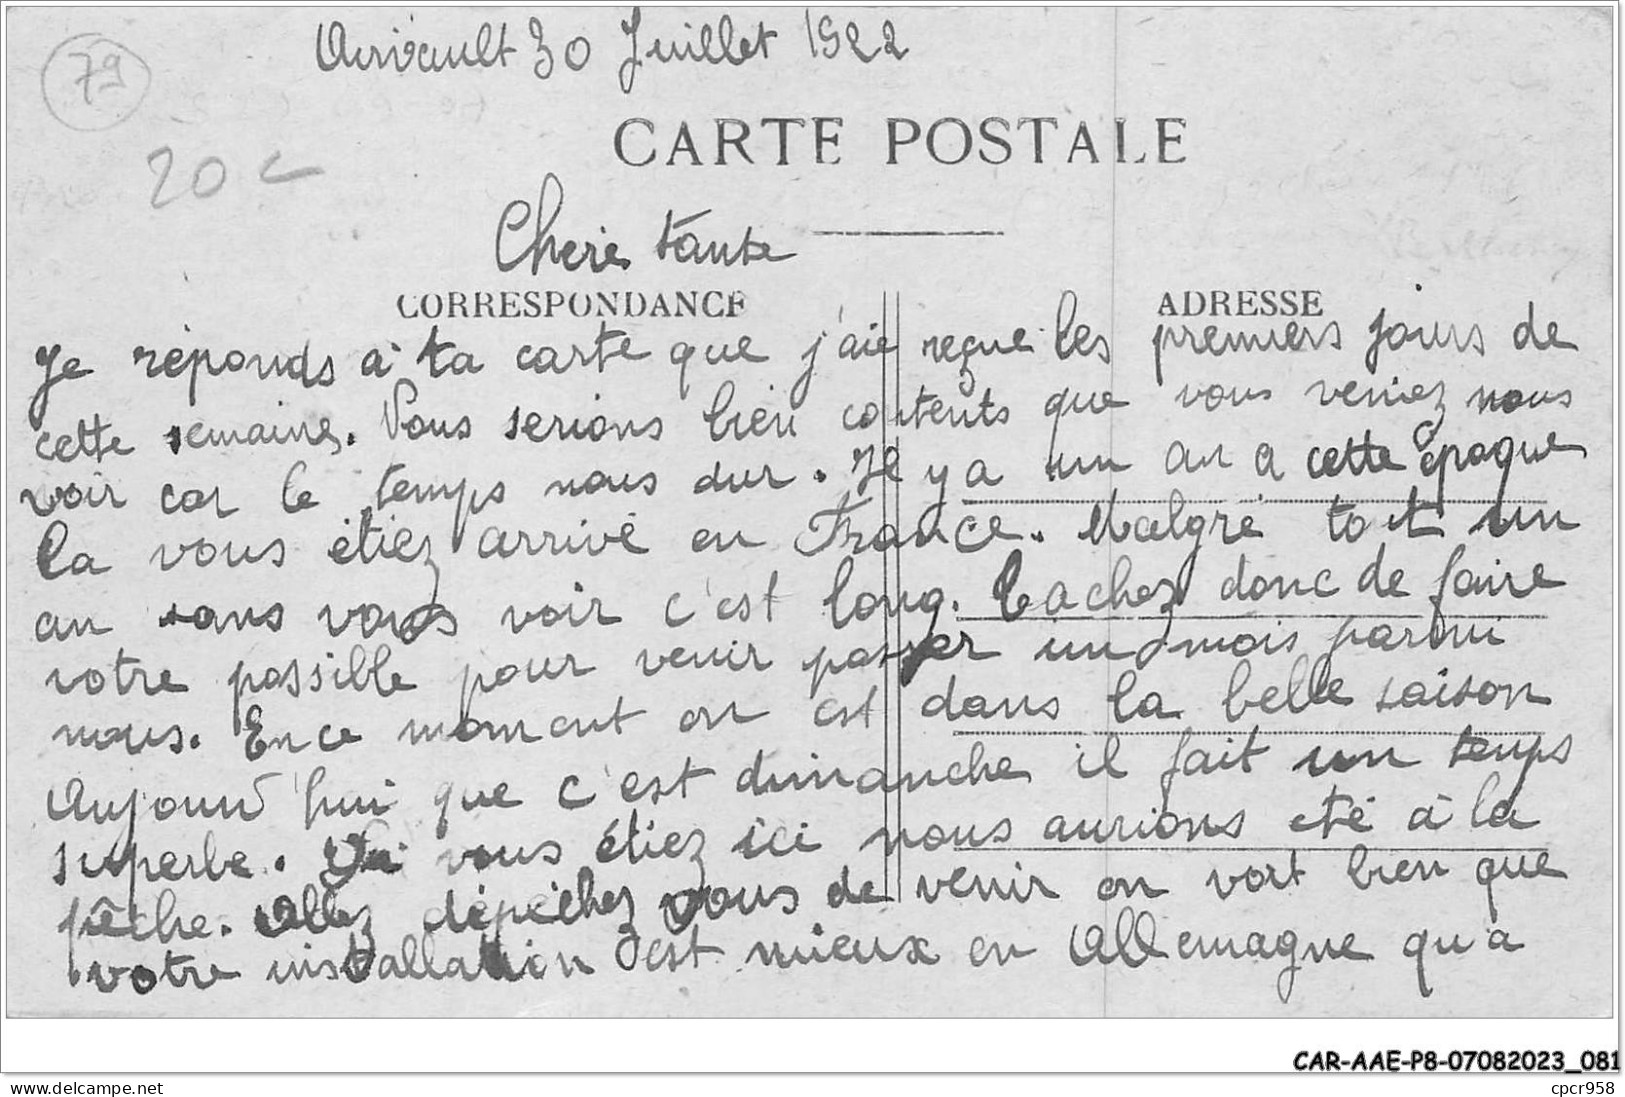 Airvault 30 Juillet 1922
79
CARTE POSTALE
20 c
Cherie tante
CORRESPONDANCE
ADRESSE
Je réponds à ta carte que j'aie reçue les premiers jours de
cette semaine. Nous serions bien contents que vous veniez nous
voir car le temps nous dur. Il y a un an a cette époque
la vous étiez arrivé en France. Malgré tout un
an sans vous voir c'est long. Tachez donc de faire
votre possible pour venir passer un mois parmi
nous. En ce moment on est dans la belle saison
Aujourd'hui que c'est dimanche il fait un temps
superbe. Si vous étiez ici nous aurions eté à la
pêche. Allez dépéchez vous de venir on voit bien que
votre installation est mieux en Allemagne qu'a
CAR-AAE-P8-07082023_081
www.delcampe.net
cpcr958